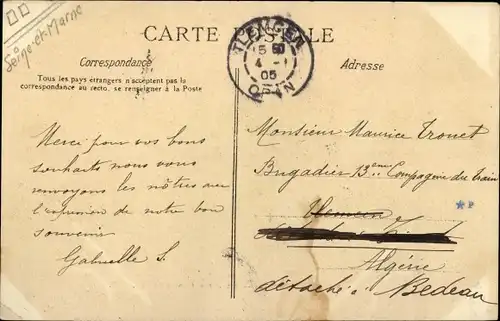 Seine-et-Marne
CARTE POSTALE
TLEMCEN
5
4 - 1
05
ORAN
Correspondance
Adresse
Tous les pays étrangers n'acceptent pas la
correspondance au recto, se renseigner à la Poste
Merci pour vos bons
souhaits nous vous
renvoyons les nôtres avec
l'expression de notre bon
souvenir
Gabrielle S.
Monsieur Maurice Trouet
Brigadier 13ème Compagnie du train
Tlemcen
Algérie
détaché à Bedeau